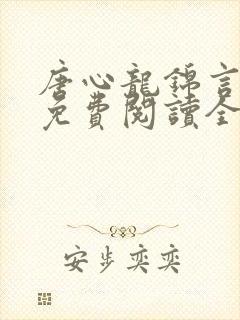 唐心龍錦言
免費閱讀全
安步奕奕